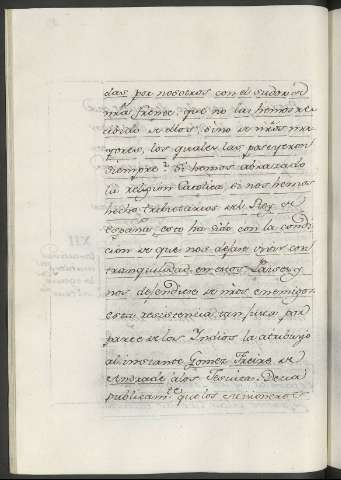 das por nosotros con el sudor de
nrâ frente: que no las hemos re
cibido de ellos, sino de nrôs ma
yores, los quales las poseyeron
siempre: si hemos abrazado
la religion Catolica, si nos hemos
hecho tributarios del Rey de
España, esto ha sido con la condi
cion de que nos dejase vivir con
tranquilidad en estos Paises, y
nos defendiese de nrôs enemigos.
esta resistencia tan justa por
parte de los Indios la atribuyó
al instante Gomez Freire de
Andrade á los Jesuitas. Decia
publicamte que los exmoneros
XII